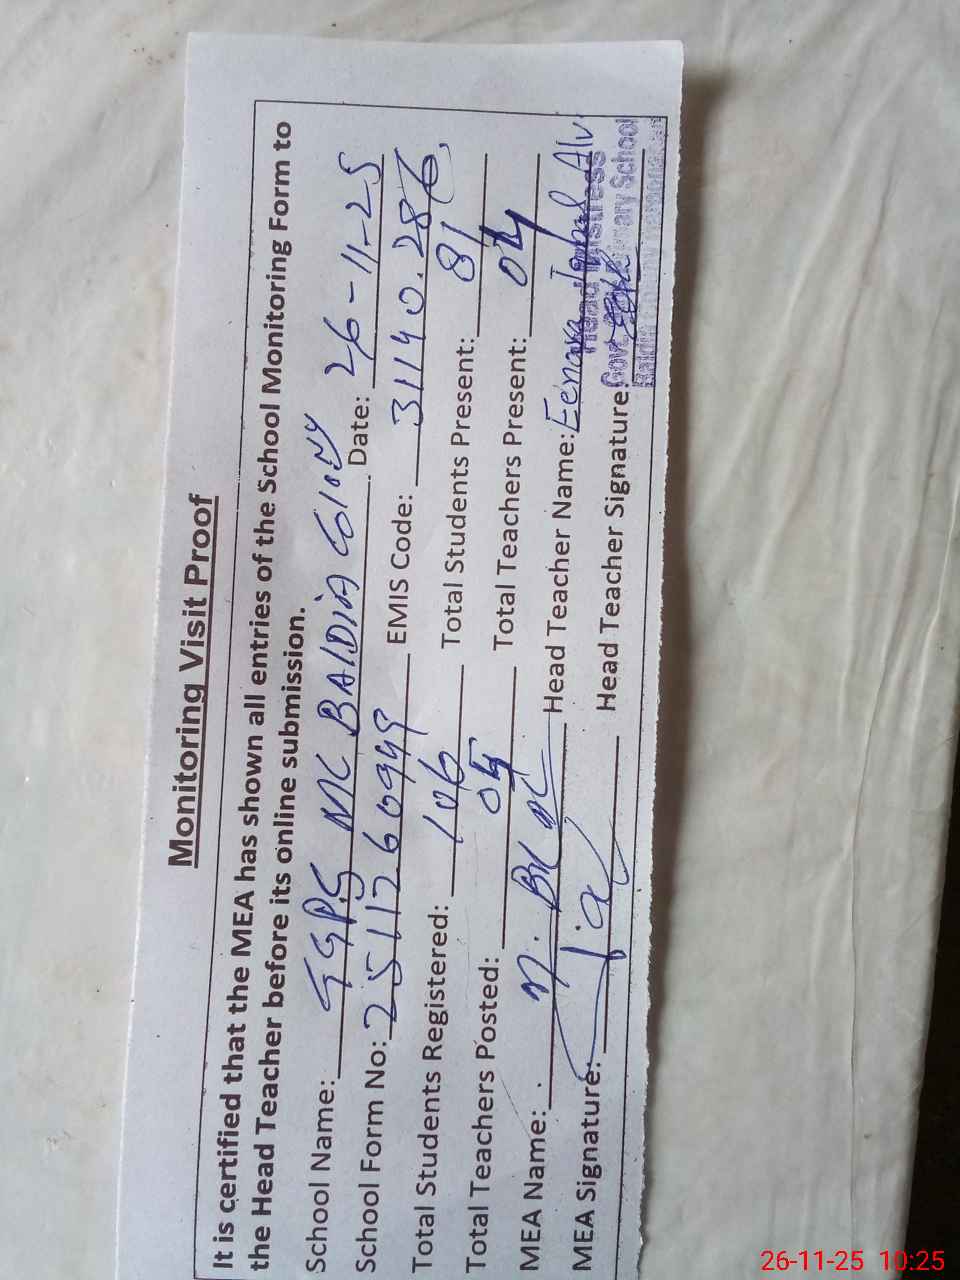 Monitoring Visit Proof
It is certified that the MEA has shown all entries of the School Monitoring Form to
the Head Teacher before its online submission.
School Name: GGPS MC BALDIA Colony Date: 26-11-25
School Form No: 2511260949 EMIS Code: 31140.286
Total Students Registered: 106 Total Students Present: 81
Total Teachers Posted: 04 Total Teachers Present: 04
MEA Name: M. Head Teacher Name:
MEA Signature: Head Teacher Signature:
Head Mistress
Govt. Primary School
26-11-25 10:25